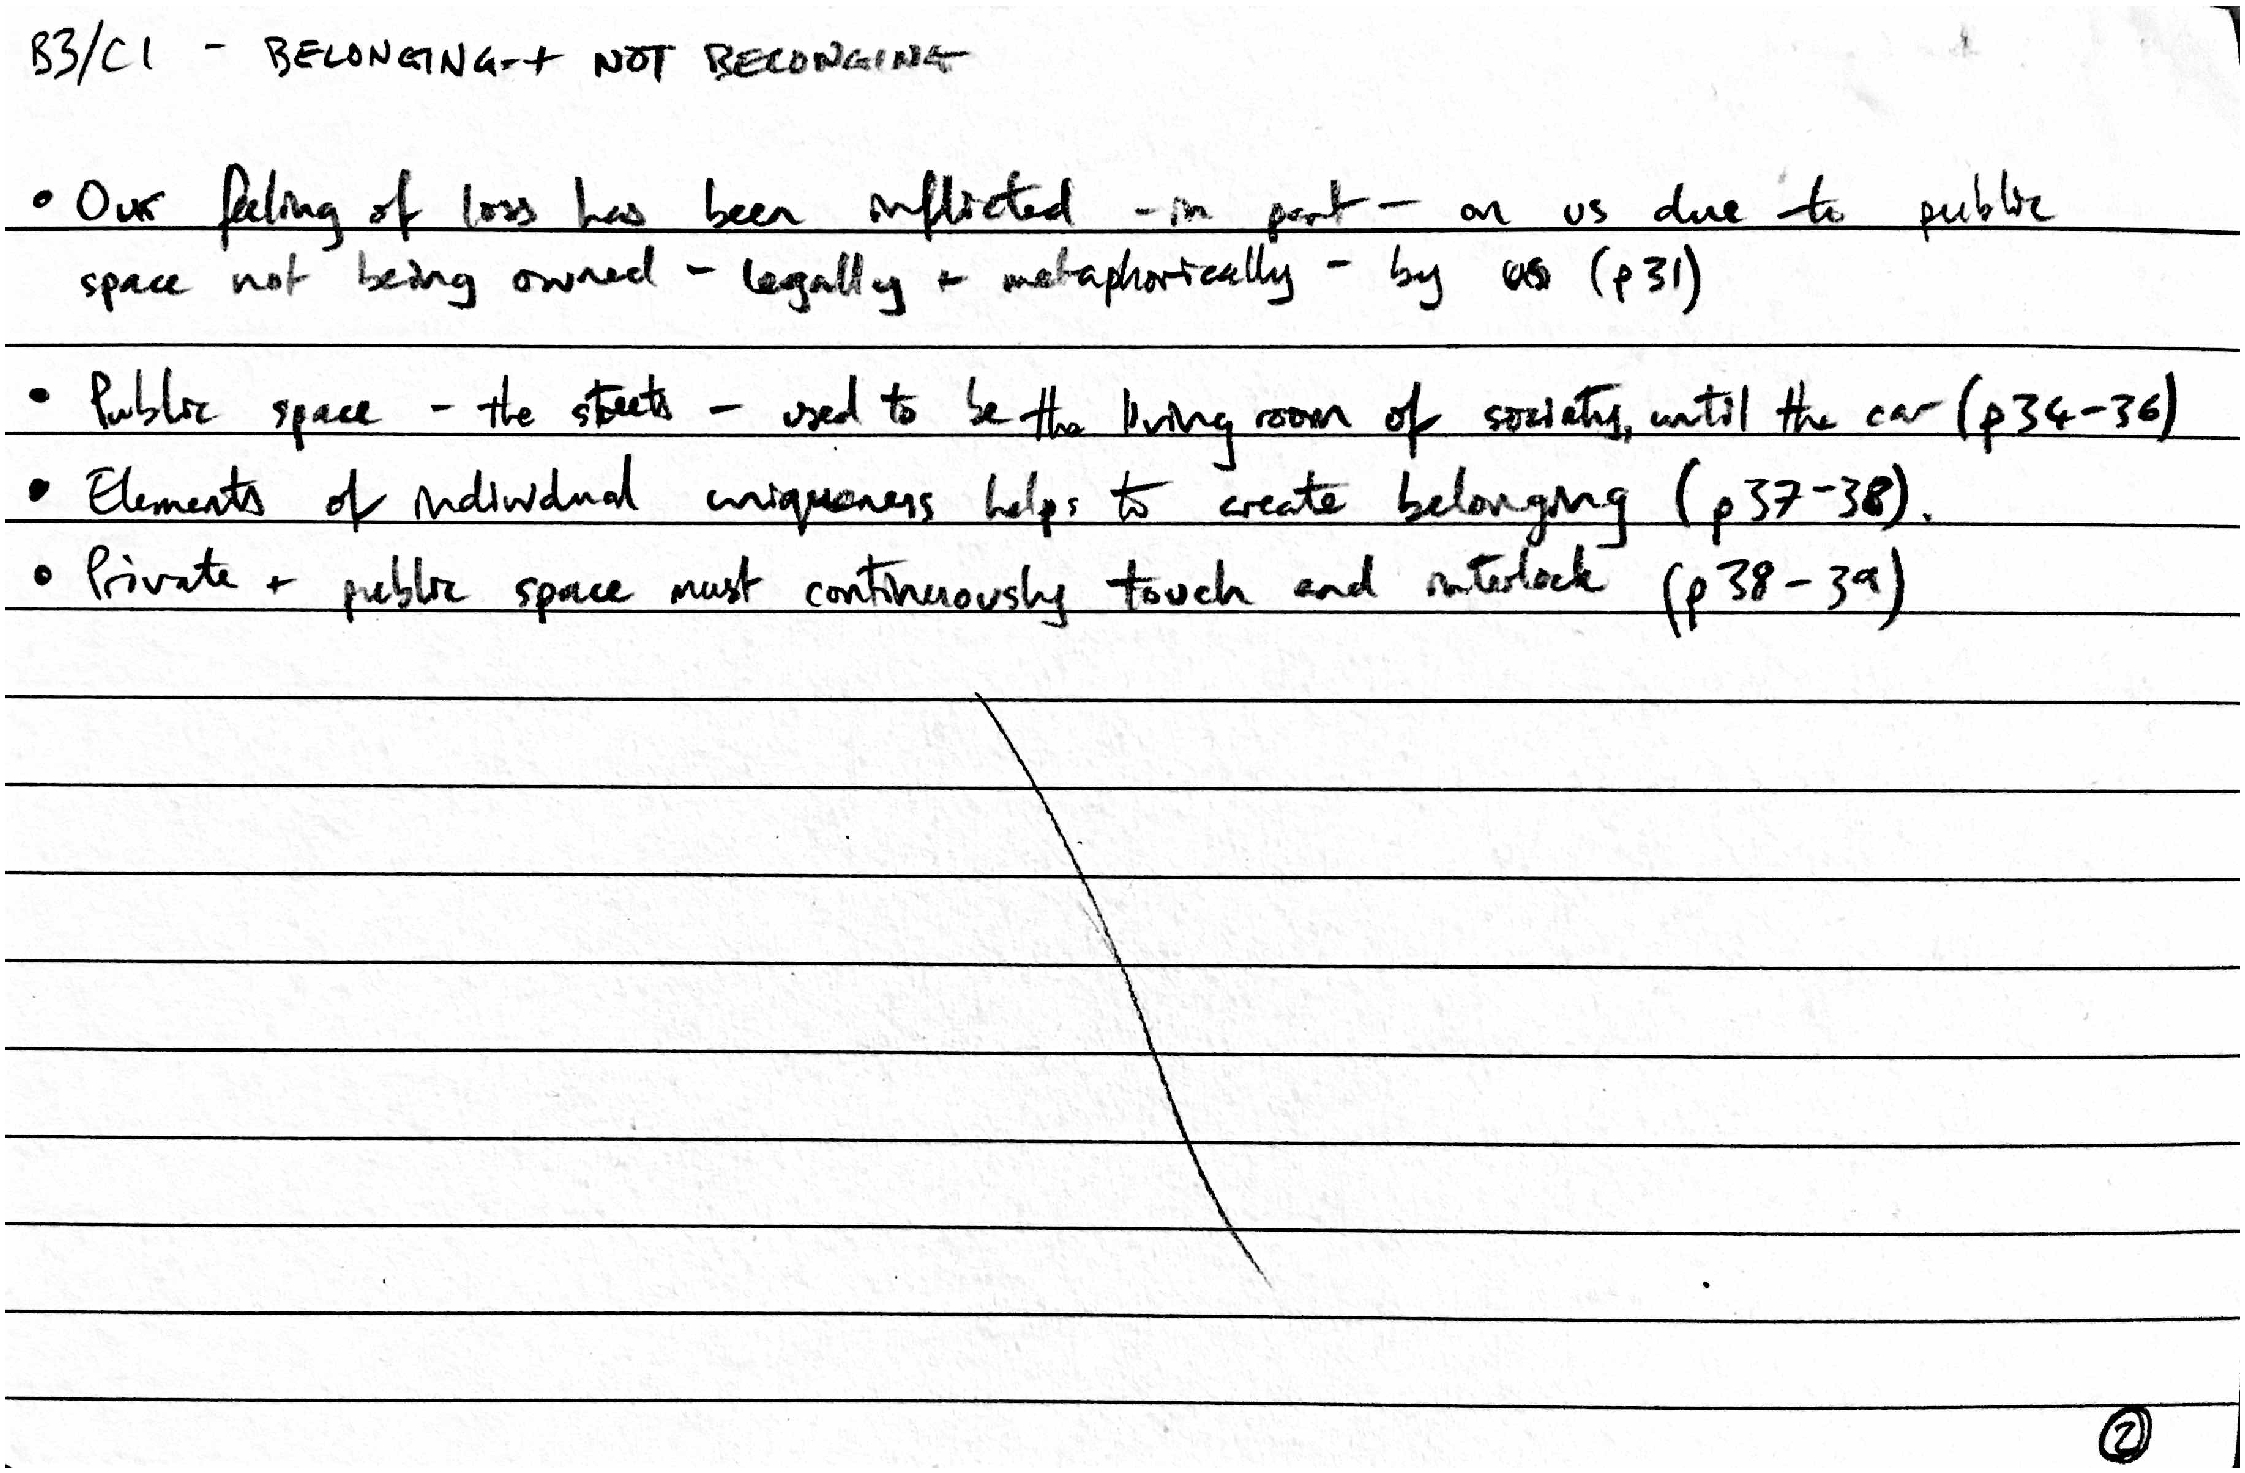 B3/C1 - BELONGING + NOT BELONGING
• Our feeling of loss has been inflicted - in part - on us due to public
space not being owned - legally + metaphorically - by us (p31)
• Public space - the streets - used to be the living room of society, until the car (p34-36)
• Elements of individual uniqueness helps to create belonging (p37-38).
• Private + public space must continuously touch and interlock (p38-39)
2